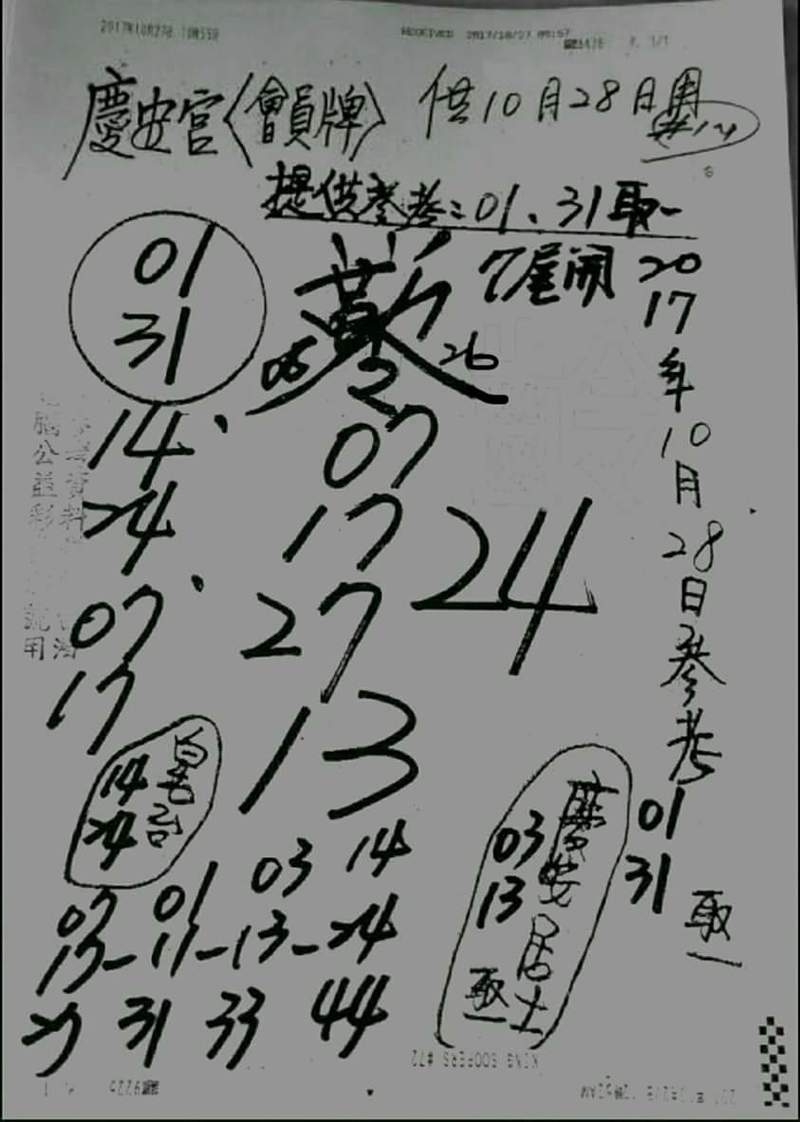 2017年10月27日 10時55分
RECEIVED 2017/10/27 09:57
P. 1/1
慶安宮〈會員牌〉 供10月28日用
提供參考:01、31取一
01
31
05
26
7尾開
2017年10月28日參考
01
31
取一
14、
24
07、
17
07
17
27
24
13
14
24
07 01 03 14
17-11-13-24
27 31 33 44
慶安居士
03
13
取一
KING SOOPERS #72